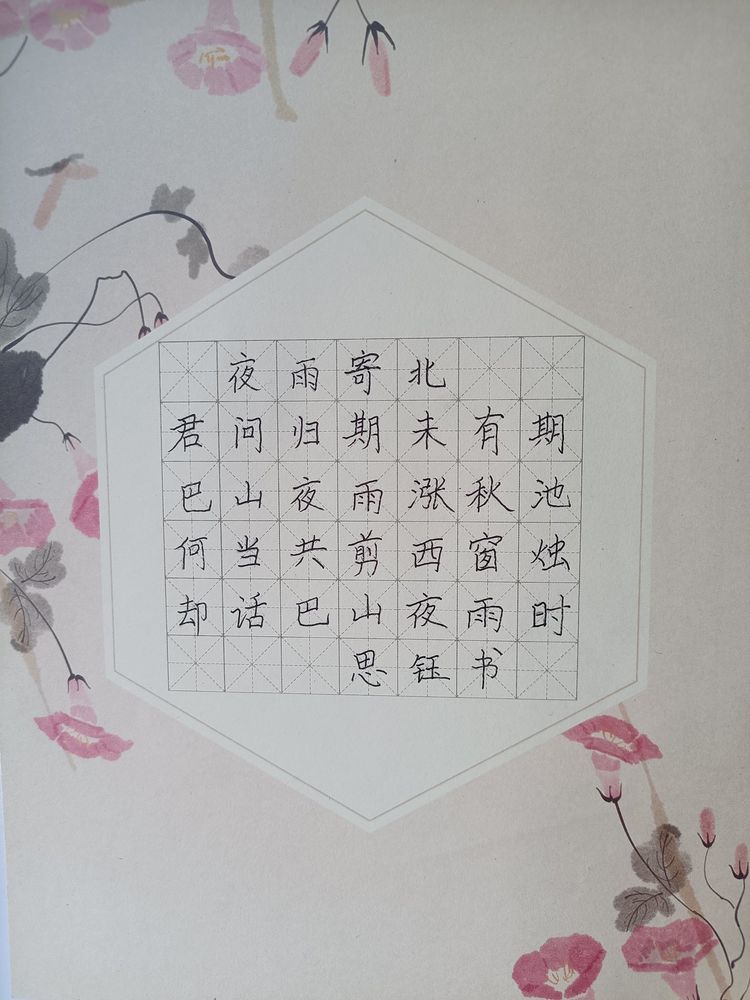 夜雨寄北
君问归期未有期
巴山夜雨涨秋池
何当共剪西窗烛
却话巴山夜雨时
思钰书